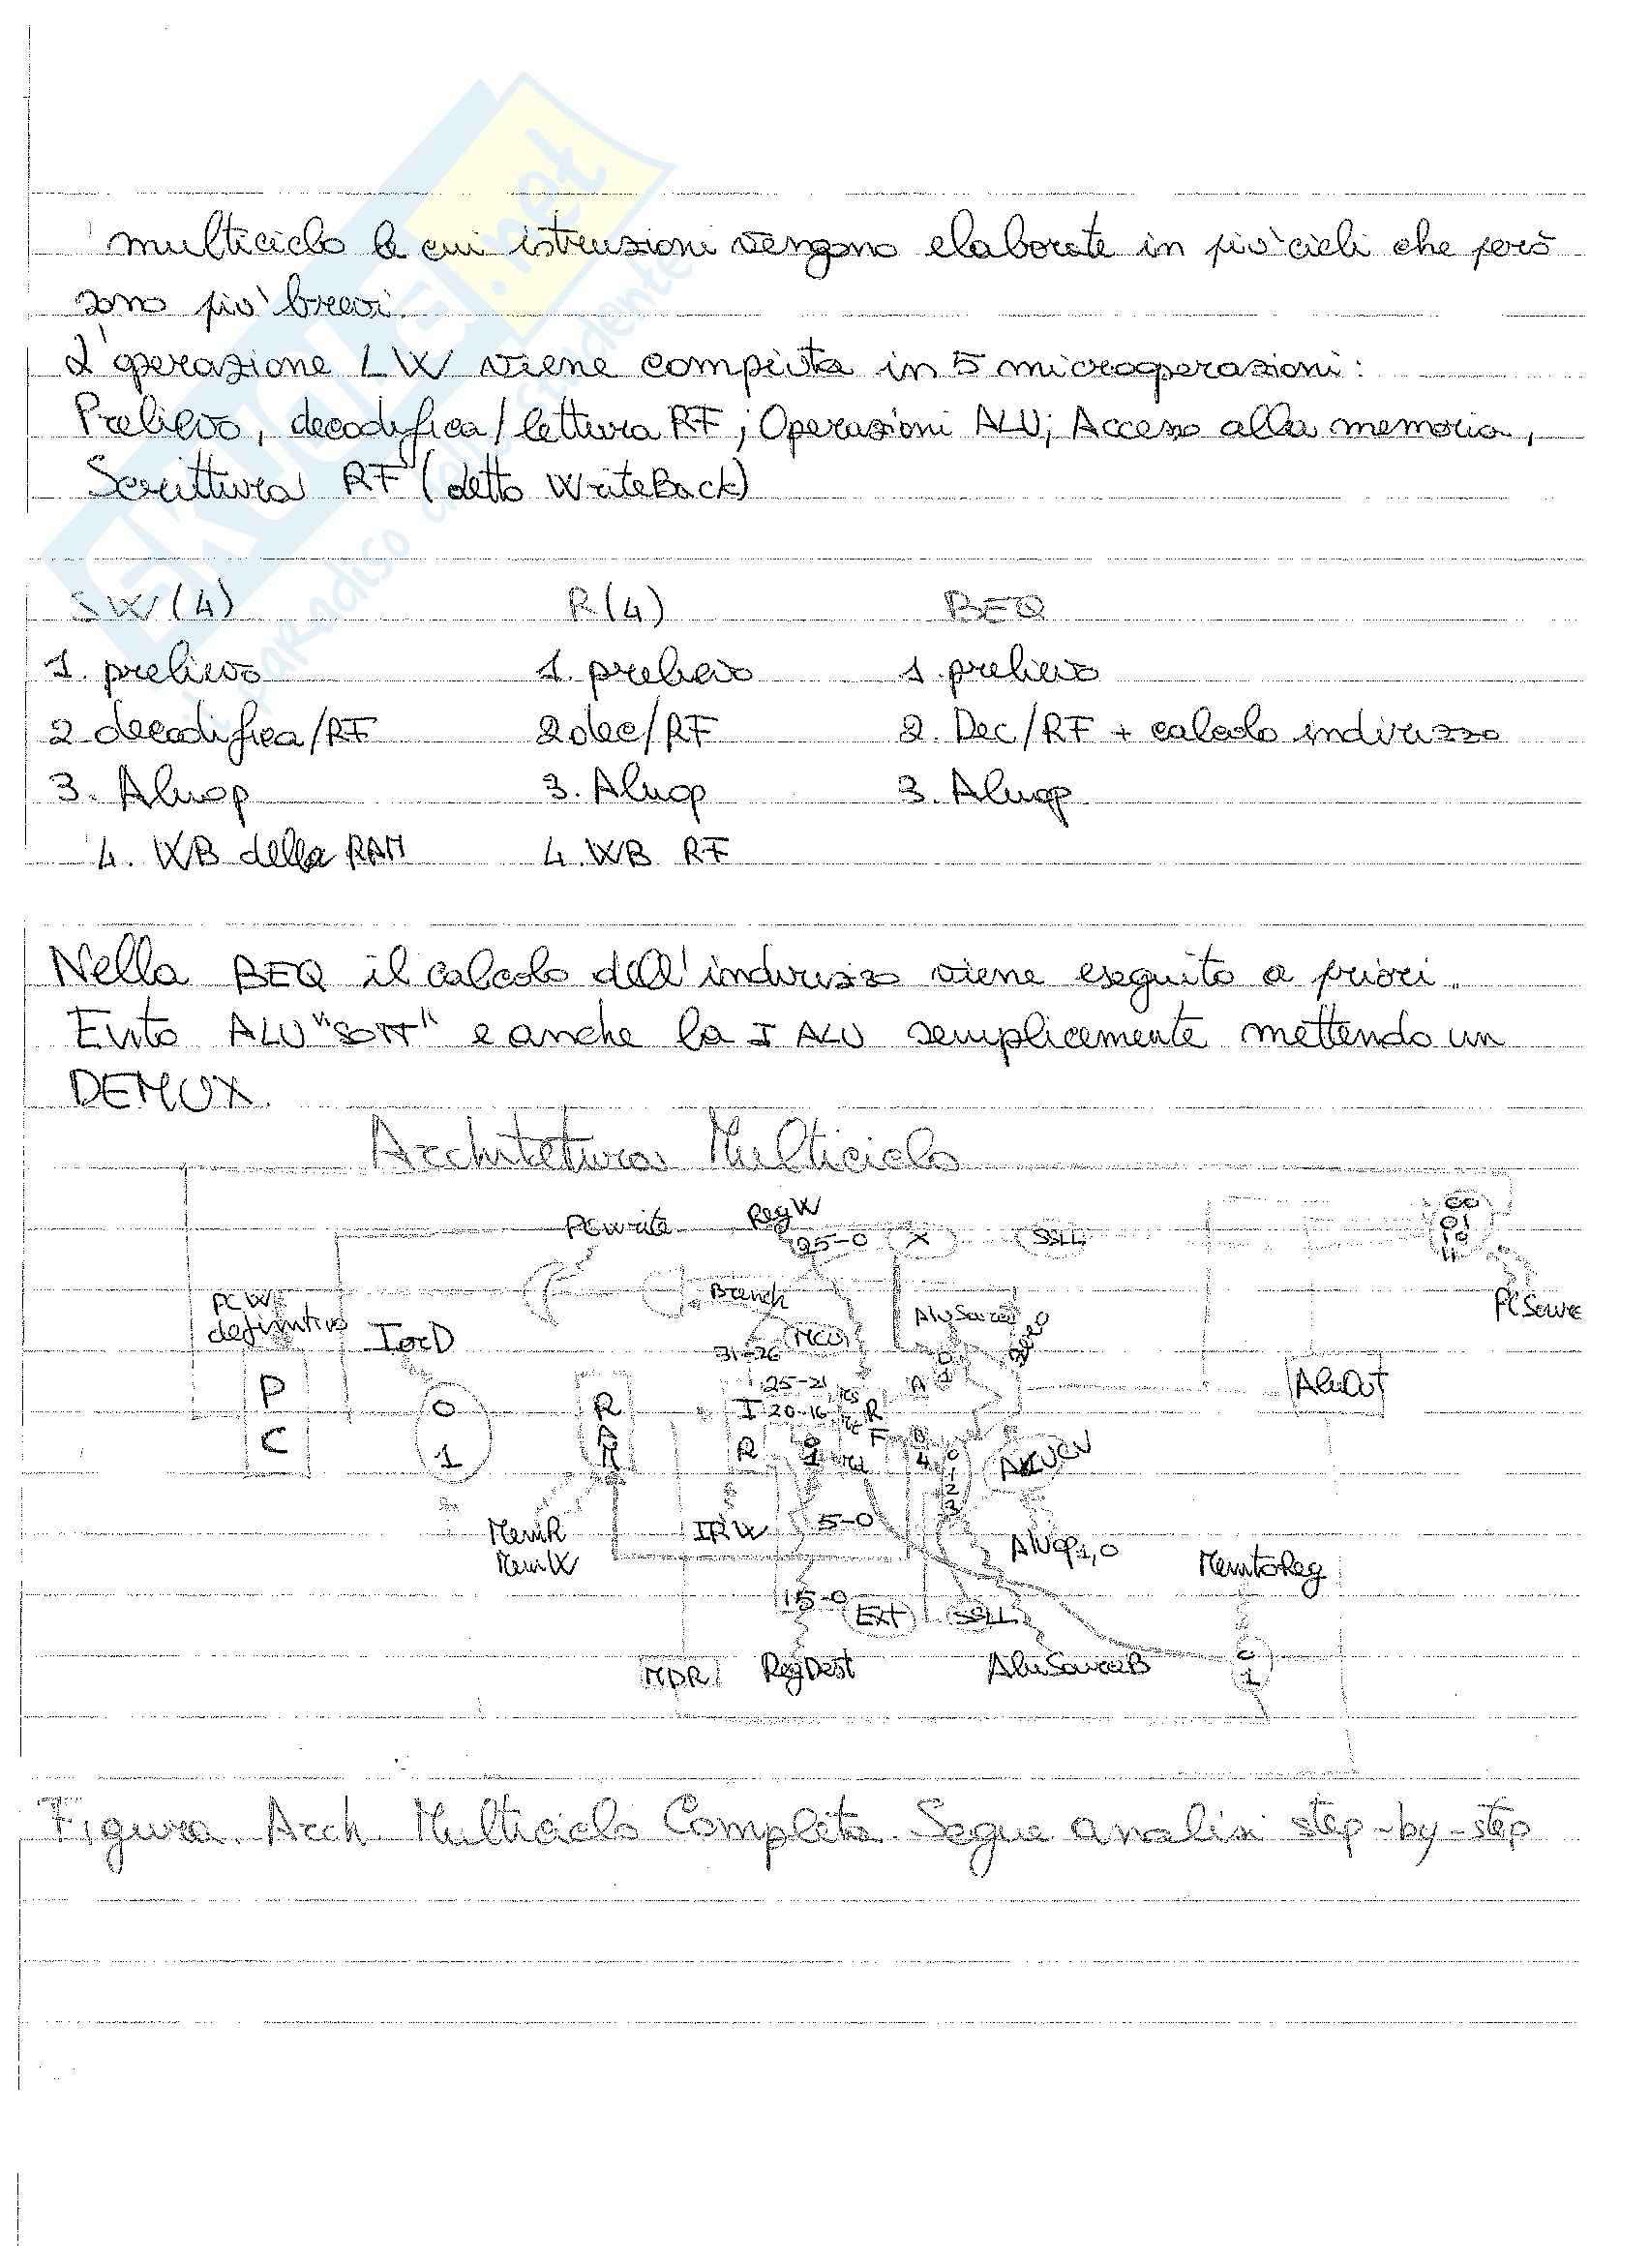 multiciclo le cui istruzioni vengono elaborate in piu' cicli che però
sono piu' brevi.
L'operazione LW viene compiuta in 5 microoperazioni:
Prelievo, decodifica/lettura RF; Operazioni ALU; Accesso alla memoria,
Scrittura RF (detto WriteBack)
SW(4) R(4) BEQ
1. prelievo 1. prelievo 1. prelievo
2 decodifica/RF 2 dec/RF 2. Dec/RF + calcolo indirizzo
3. Aluop 3. Aluop 3. Aluop
4. WB della RAM 4. WB RF
Nella BEQ il calcolo dell'indirizzo viene eseguito a priori.
Evito ALU "SOTT" e anche la I ALU semplicemente mettendo un
DEMUX.
Architettura Multiciclo
PCWrite RegW
25-0 X SSLL
00
01
10
11
PCW
definitivo
IorD
Branch
AluSourceA
Zero
PCSource
MCU
31-26
P
C
0
1
R
A
M
I
R
25-21
20-16
0
1
R
F
A
B
4
0
1
0
1
2
3
ALUCU
AluOut
MemR
MemW
IRW
5-0
Aluop1,0
MemtoReg
15-0 Ext SSLL
MDR RegDest AluSourceB
0
1
Figura. Arch. Multiciclo Completa. Segue analisi step-by-step
EKUOLE.net
il paradiso dello studente